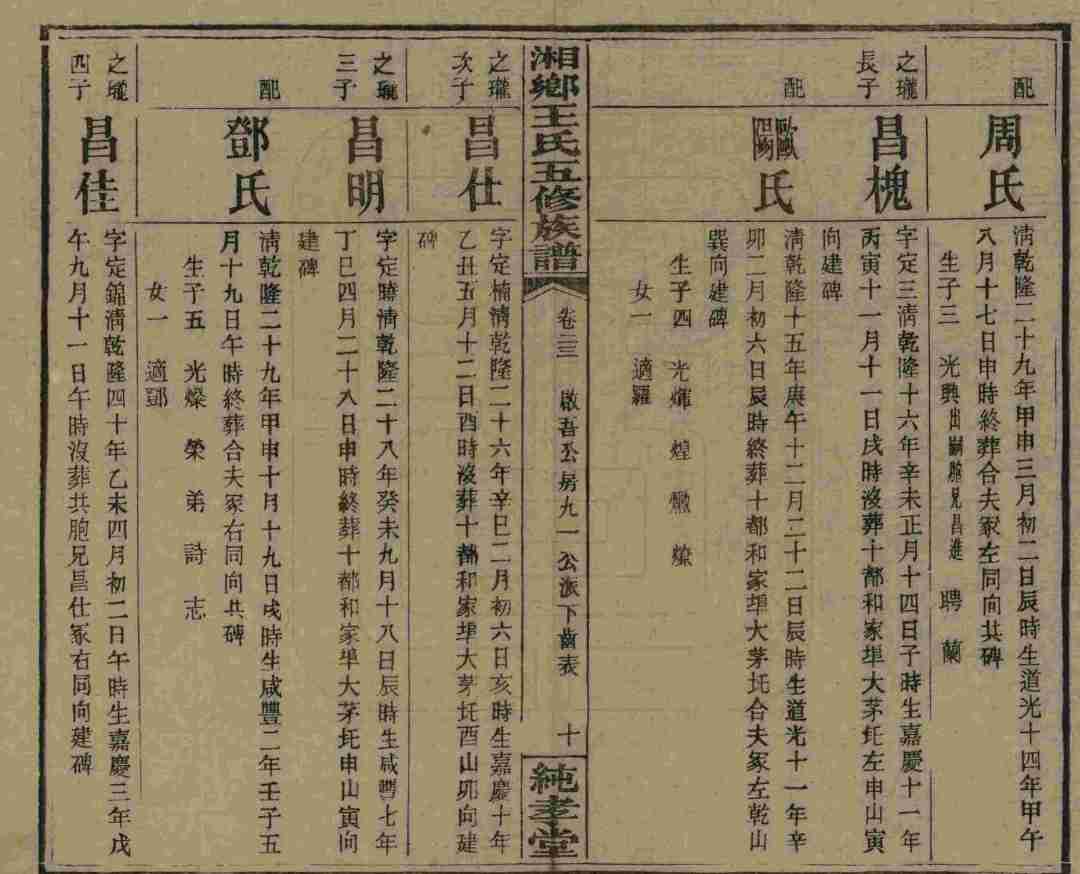 配
周氏
清乾隆二十九年甲申三月初二日辰時生道光十四年甲午
八月十七日申時終葬合夫冢左同向共碑
生子三 光興出嗣胞兄昌進 聘 蘭
之瓏
長子
昌槐
字定三清乾隆十六年辛未正月十四日子時生嘉慶十一年
丙寅十一月十一日戌時沒葬十都和家埠大茅圫左申山寅
向建碑
配
歐陽氏
清乾隆十五年庚午十二月二十二日辰時生道光十一年辛
卯二月初六日辰時終葬十都和家埠大茅圫合夫冢左乾山
巽向建碑
生子四 光燿 煌 燉 燎
女一 適羅
湘鄉王氏五修族譜
卷三 啟吾公房九一公派下齒表 十
純孝堂
之瓏
次子
昌仕
字定楠清乾隆二十六年辛巳二月初六日亥時生嘉慶十年
乙丑五月十二日酉時沒葬十都和家埠大茅圫酉山卯向建
碑
之瓏
三子
昌明
字定瞻清乾隆二十八年癸未九月十八日辰時生咸豐七年
丁巳四月二十八日申時終葬十都和家埠大茅圫申山寅向
建碑
配
鄧氏
清乾隆二十九年甲申十月十九日戌時生咸豐二年壬子五
月十九日午時終葬合夫冢右同向共碑
生子五 光燦 榮 弟 詩 志
女一 適鄧
之瓏
四子
昌佳
字定錦清乾隆四十年乙未四月初二日午時生嘉慶三年戊
午九月十一日午時沒葬共胞兄昌仕冢右同向建碑